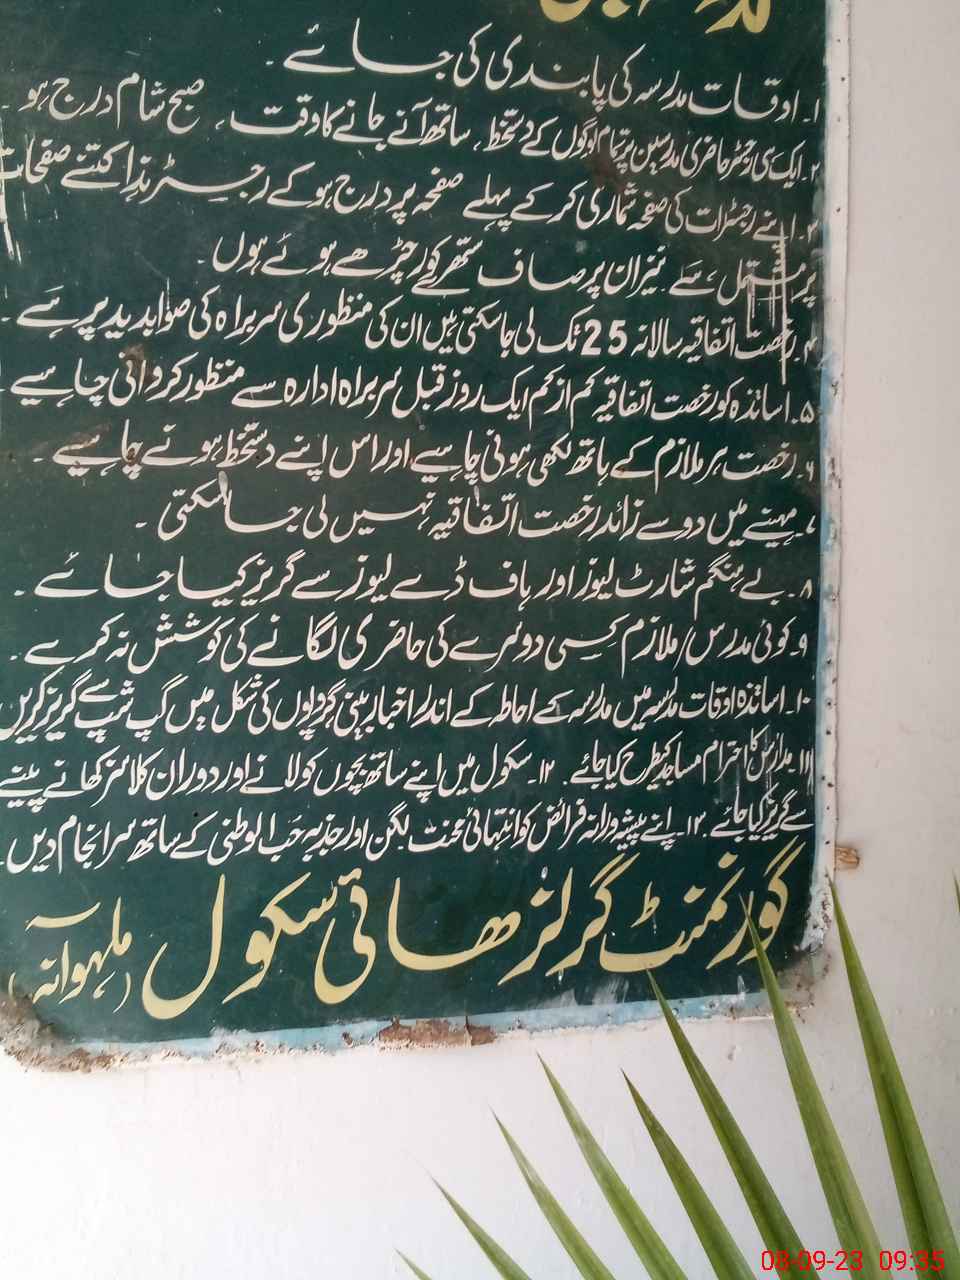 ۱۔ اوقات مدرسہ کی پابندی کی جائے۔
۲۔ ایک ہی رجسٹر حاضری مدرسین پر تمام لوگوں کے دستخط، ساتھ آنے جانے کا وقت۔ صبح شام درج ہو۔
۳۔ اپنے رجسٹرات کی صفحہ شماری کر کے پہلے صفحہ پر درج ہو کے رجسٹر ہذا کتنے صفحات
پر مشتمل ہے، نیز ان پر صاف ستھرے کور چڑھے ہوئے ہوں۔
۴۔ رخصت اتفاقیہ سالانہ 25 تک لی جا سکتی ہیں ان کی منظوری سربراہ کی صوابدید پر ہے۔
۵۔ اساتذہ کو رخصت اتفاقیہ کم از کم ایک روز قبل سربراہ ادارہ سے منظور کروانی چاہیے
۶۔ رخصت ہر ملازم کے ہاتھ لکھی ہونی چاہیے اور اس اپنے دستخط ہونے چاہیے۔
۷۔ مہینے میں دو سے زائد رخصت اتفاقیہ نہیں لی جا سکتی۔
۸۔ بے ہنگم شارٹ لیوز اور ہاف ڈے لیوز سے گریز کیا جائے۔
۹۔ کوئی مدرس/ملازم کسی دوسرے کی حاضری لگانے کی کوشش نہ کرے۔
۱۰۔ اساتذہ اوقات مدرسہ میں مدرسہ کے احاطہ کے اندر اخبار بینی گروپوں کی شکل میں گپ شپ سے گریز کریں
۱۱۔ مدارس کا احترام مساجد کیطرح کیا جائے۔ ۱۲۔ سکول میں اپنے ساتھ بچوں کو لانے اور دوران کلاسز کھانے پینے
سے گریز کیا جائے۔ ۱۳۔ اپنے پیشہ ورانہ فرائض کو انتہائی محنت لگن اور جذبہ حب الوطنی کے ساتھ سرانجام دیں۔
گورنمنٹ گرلز ھائی سکول (ملہوانہ)
08-09-23 09:35